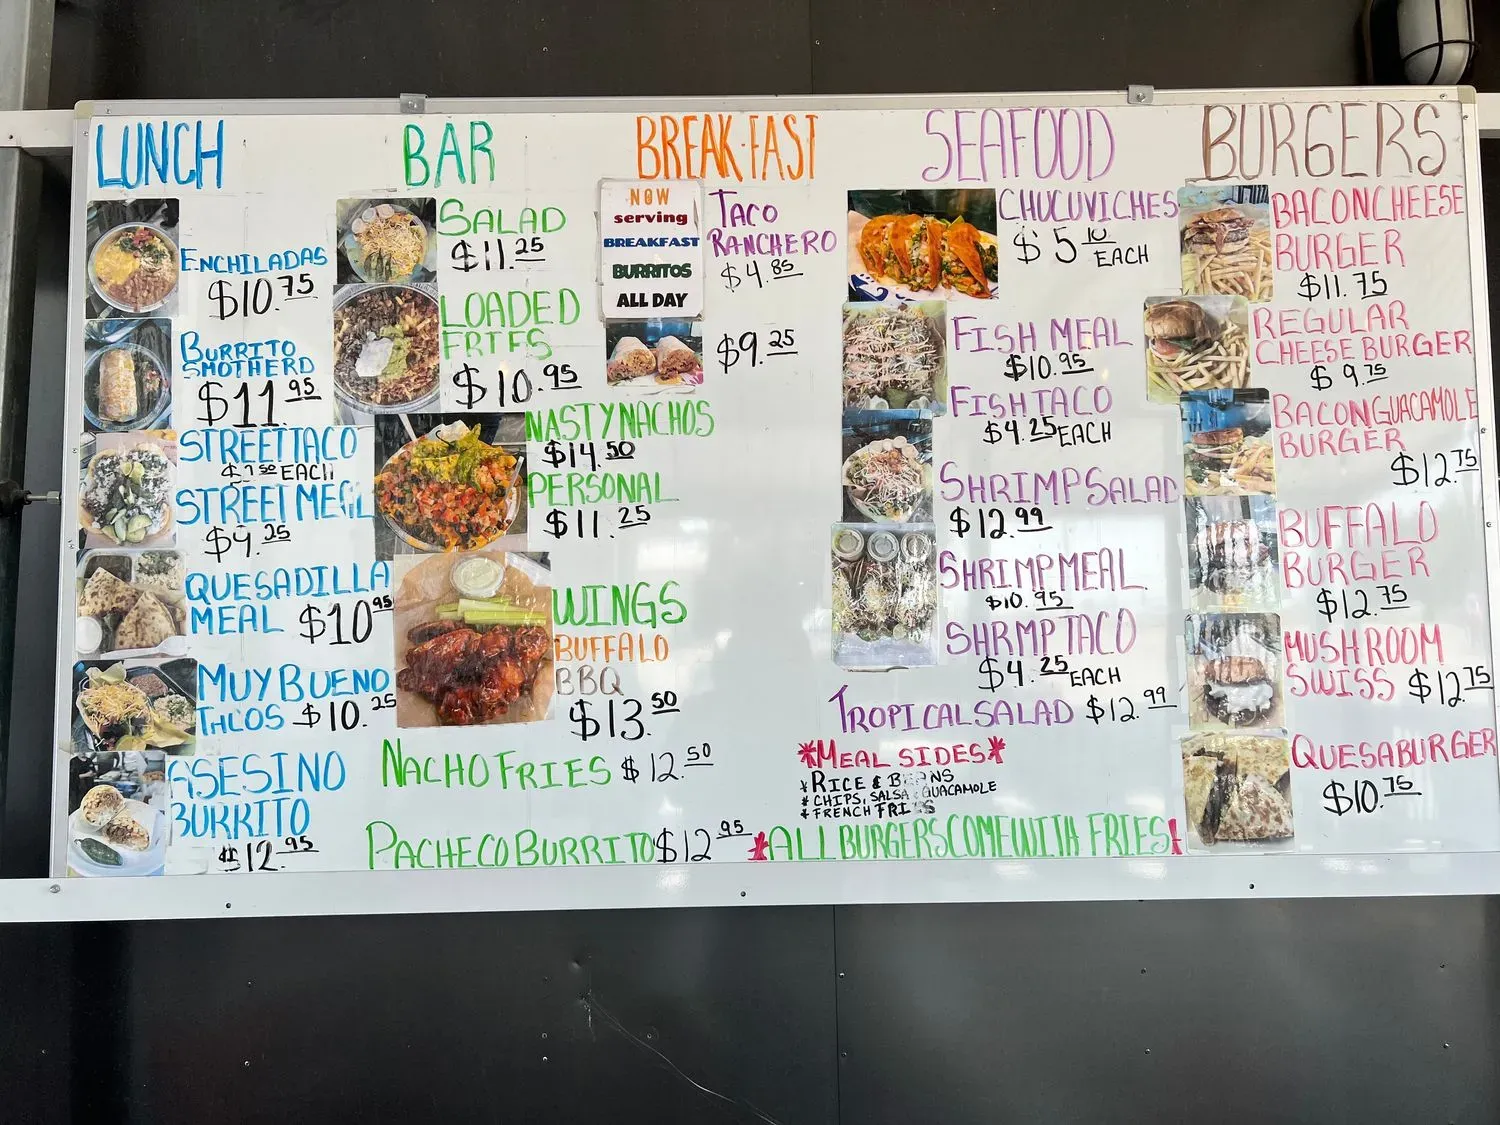 LUNCH
ENCHILADAS
$10.75
BURRITO
SMOTHERD
$11.95
STREET TACO
EACH
STREET MEAL
$9.25
QUESADILLA
MEAL $10.95
MUY BUENO
TACOS $10.25
ASESINO
BURRITO
$12.95
BAR
SALAD
$11.25
LOADED
FRIES
$10.95
NASTY NACHOS
$14.50
PERSONAL
$11.25
WINGS
BUFFALO
BBQ
$13.50
NACHO FRIES $12.50
PACHECO BURRITO $12.95
BREAKFAST
NOW
serving
BREAKFAST
BURRITOS
ALL DAY
$9.25
TACO
RANCHERO
$4.85
SEAFOOD
CHUCUVICHES
$5.10
EACH
FISH MEAL
$10.95
FISH TACO
$4.25 EACH
SHRIMP SALAD
$12.99
SHRIMP MEAL
$10.95
SHRMP TACO
$4.25 EACH
TROPICAL SALAD $12.99
*MEAL SIDES*
* RICE & BEANS
* CHIPS, SALSA, GUACAMOLE
* FRENCH FRIES
*ALL BURGERS COME WITH FRIES*
BURGERS
BACON CHEESE
BURGER
$11.75
REGULAR
CHEESE BURGER
$9.75
BACON GUACAMOLE
BURGER
$12.75
BUFFALO
BURGER
$12.75
MUSHROOM
SWISS $12.75
QUESABURGER
$10.75